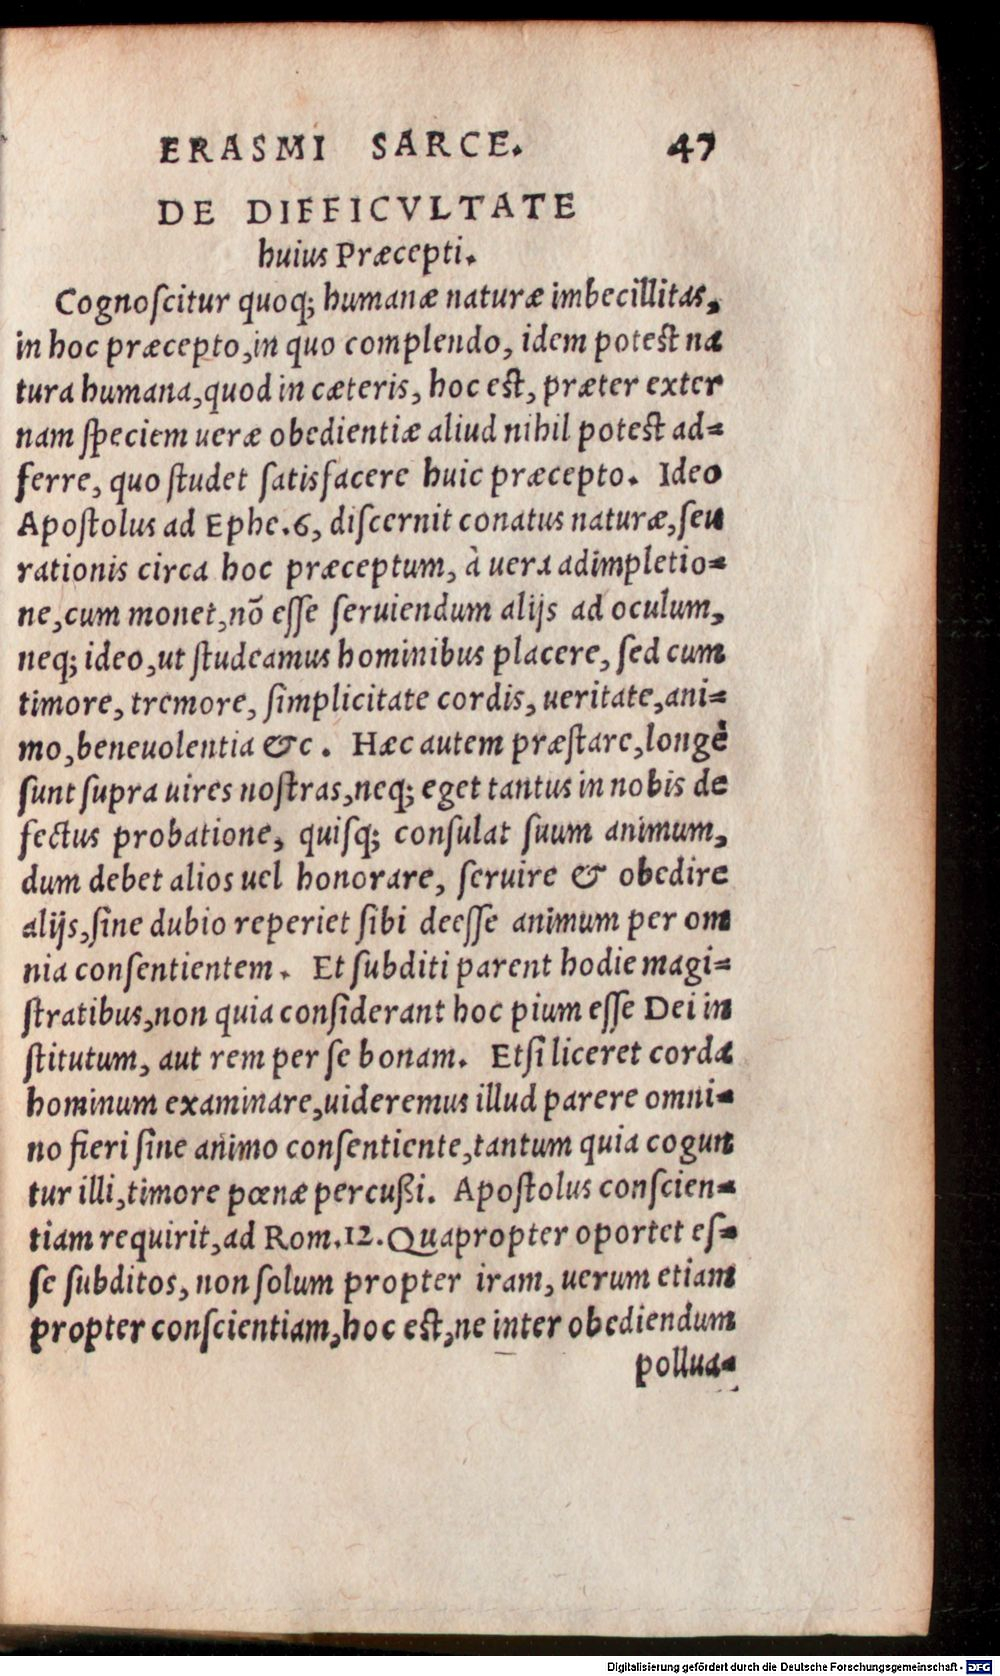 ERASMI SARCE. 47
DE DIFFICVLTATE
huius Præcepti.
Cognoſcitur quoq; humanæ naturæ imbecillitas,
in hoc præcepto,in quo complendo, idem poteſt na
tura humana,quod in cæteris, hoc eſt, præter exter
nam ſpeciem ueræ obedientiæ aliud nihil poteſt ad=
ferre, quo ſtudet ſatisfacere huic præcepto. Ideo
Apoſtolus ad Ephe.6, diſcernit conatus naturæ,ſeu
rationis circa hoc præceptum, à uera adimpletio=
ne,cum monet,nõ eſſe ſeruiendum alijs ad oculum,
neq; ideo,ut ſtudeamus hominibus placere, ſed cum
timore, tremore, ſimplicitate cordis, ueritate,ani=
mo,beneuolentia &c. Hæc autem præſtare,longè
ſunt ſupra uires noſtras,neq; eget tantus in nobis de
fectus probatione, quiſq; conſulat ſuum animum,
dum debet alios uel honorare, ſeruire & obedire
alijs,ſine dubio reperiet ſibi deeſſe animum per om
nia conſentientem. Et ſubditi parent hodie magi=
ſtratibus,non quia conſiderant hoc pium eſſe Dei in
ſtitutum, aut rem per ſe bonam. Etſi liceret corda
hominum examinare,uideremus illud parere omni=
no fieri ſine animo conſentiente,tantum quia cogun
tur illi,timore pœnæ percußi. Apoſtolus conſcien=
tiam requirit,ad Rom.12. Quapropter oportet eſ=
ſe ſubditos, non ſolum propter iram, uerum etiam
propter conſcientiam,hoc eſt,ne inter obediendum
pollua=
Digitalisierung gefördert durch die Deutsche Forschungsgemeinschaft - DFG